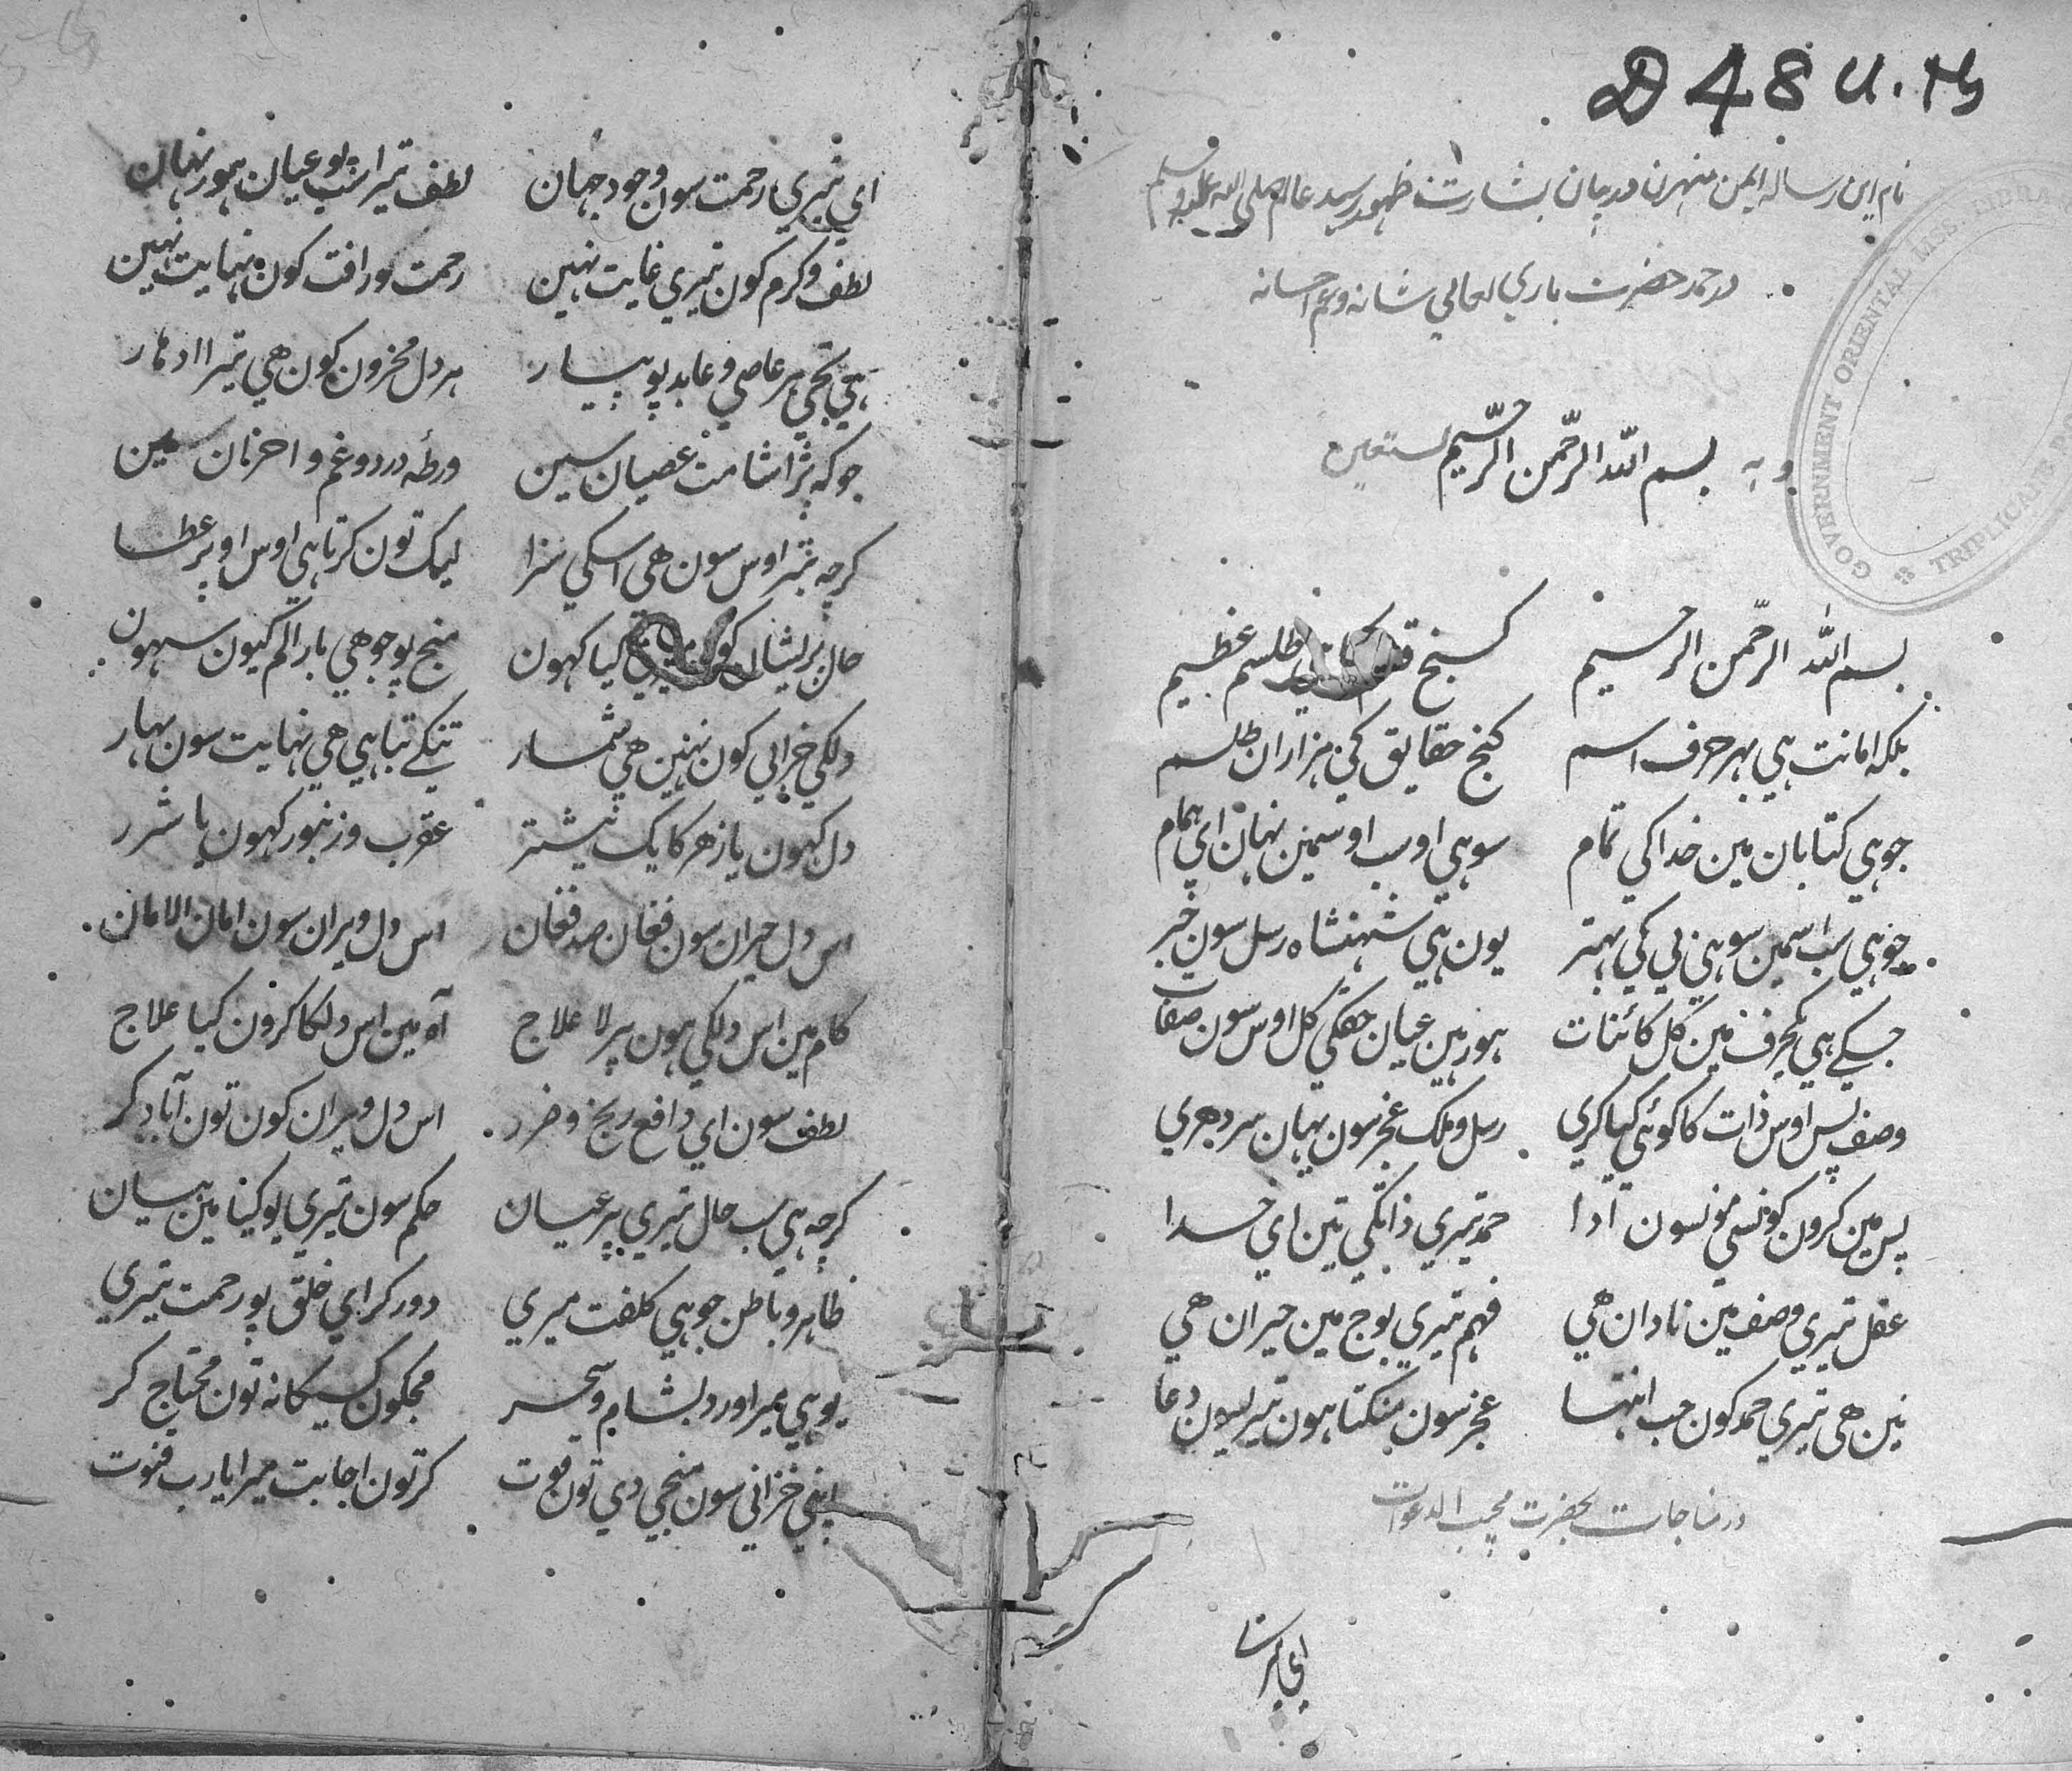 D 48 U. Ms
نام این رساله ایمن منهرن در بیان بشارت ظهور سید عالم صلی الله علیه وسلم
در حمد حضرت باري تعالي شانه وعم احسانه
وبه بسم الله الرحمن الرحیم نستعین
GOVERNMENT ORIENTAL MSS. LIBRARY
TRIPLICANE
بسم الله الرحمن الرحیم گنج طلسم عظیم
بلکه امانت هي بهر حرف اسم گنج حقایق کي هزاران طلسم
جو هي کتابان مین خدا کي تمام سو هي او سب اوسمین نهان اي همام
جو هي سب اسمین سو هي بي کي بهتر یون هي شهنشاه رسل سون خبر
جسکے هي یکحرف مین کل کائنات هور هین عیان حقکي کل اوس سون صفات
وصف بس اوس ذات کا کوئي کیا کري رسل و ملک عجز سون یهان سر دهري
پس مین کرون کونسي مونسون ادا حمد تیري ذاتکي تین اي خدا
عقل تیري وصف مین نادان هي فهم تیري بوج مین حیران هي
نین هي تیري حمد کون جب انتها عجز سون منگتا هون تیرسون دعا
در مناجات بحضرت مجیب الدعوات
اي تیري
اي تیري رحمت سون وجود جهان لطف تیرا سب پو عیان هور نهان
لطف و کرم کون تیري غایت نهین رحمت و رافت کون نهایت نهین
هي تجي هر عاصي و عابد پو پیار هر دل محزون کون هي تیرا ادهار
جو که پڑا شامت عصیان سین ورطهٔ درد و غم و احزان مین
گرچه ثمر اوس سون هي اسکي سزا لیک تون کرتا هي اوس اوپر عطا
حال پریشان کون کیا کهون منج پو جو هي بار الم کیون سهون
دلکي خرابي کون نهین هي شمار تنکے تباهي هي نهایت سون بهار
دل کهون یا زهر کا یک نیشتر عقرب و زنبور کهون یا شرر
اس دل حیران سون فغان صد فغان اس دل ویران سون امان الامان
کام مین اس دلکي هون پر لا علاج آه مین اس دلکا کرون کیا علاج
لطف سون اي دافع رنج و ضرر اس دل ویران کون تون آباد کر
گرچه هي سب حال تیري پر عیان حکم سون تیري یو کیتا مین بیان
ظاهر و باطن جو هي کلفت میري دور کر اي خلق پو رحمت تیري
یو هي میرا ورد بشام و سحر مجکون کسیکا نه تون محتاج کر
اپني خزاني سون منجي دي تون قوت کر تون اجابت میرا یا رب قنوت